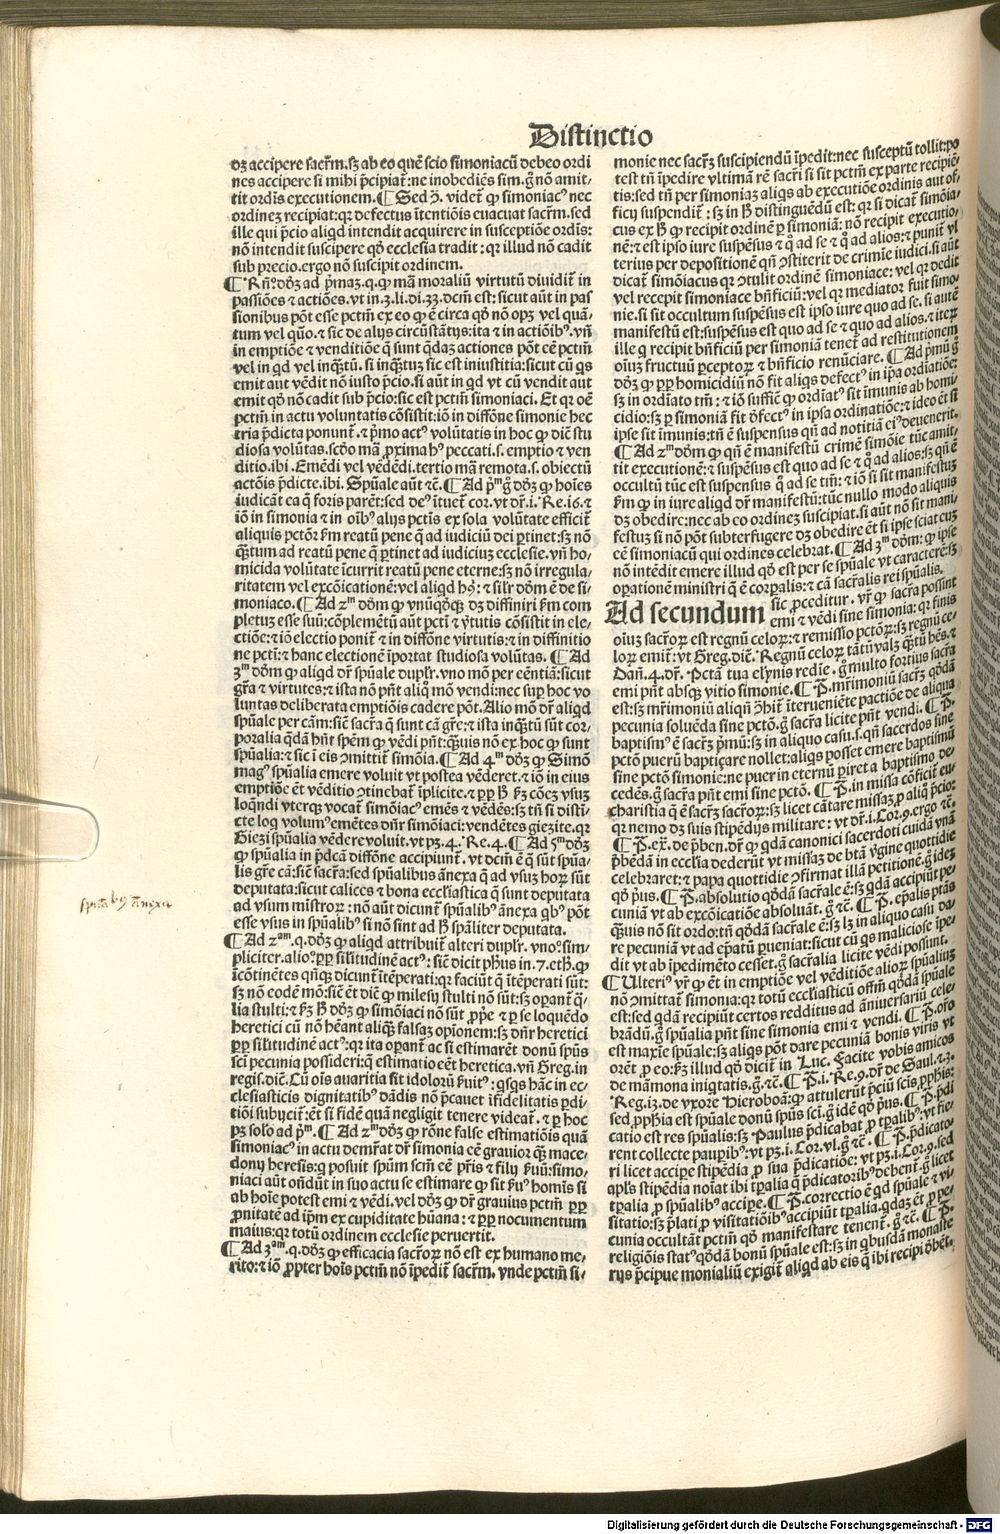 Distinctio
dꝫ accipere sacr̃m.sꝫ ab eo quẽ scio simoniacũ debeo ordi
nes accipere si mihi p̃cipiat᷑:ne inobediẽs sim.g̃ nõ amit-
tit ordis executionem.¶ Sed ꝯ̃. videt᷑ ꝙ simoniacꝰ nec
ordinez recipiat:qꝛ defectus ĩtentiõis euacuat sacr̃m.sed
ille qui p̃cio aliqd intendit acquirere in susceptiõe ordis:
nõ intendit suscipere qd̃ ecclesia tradit:qꝛ illud nõ cadit
sub precio.ergo nõ suscipit ordinem.
¶ Rñ.dõꝫ ad p̃maꝫ.q.ꝙ mã moraliũ virtutũ diuidit᷑ in
passiões ⁊ actiões.vt in.3.li.di.33.dcm̃ est:sicut aũt in pas
sionibus põt esse pctm̃ ex eo ꝙ ẽ circa qd̃ nõ opꝫ vel quã-
tum vel qũo.⁊ sic de alijs circũstãtijs:ita ⁊ in actiõibꝰ.vñ
in emptiõe ⁊ venditiõe q̃ sunt q̃daꝫ actiones põt eẽ pctm̃
vel in qd vel inq̃tũ.si inq̃tuꝫ sic est iniustitia:sicut cũ qs
emit aut vẽdit nõ iusto p̃cio.si aũt in qd vt cũ vendit aut
emit qd̃ nõ cadit sub p̃cio:sic est pctm̃ simoniaci. Et qꝛ oẽ
pctm̃ in actu voluntatis cõsistit:iõ in diffõne simonie hec
tria p̃dicta ponunt᷑.⁊ p̃mo actꝰ volũtatis in hoc ꝙ dic̃ stu
diosa volũtas.scdo mã ꝓxima hꝰ peccati.s. emptio ⁊ ven
ditio.ibi. Emẽdi vel vẽdẽdi.tertio mã remota.s. obiectũ
actõis p̃dicte.ibi. Spũale aũt ⁊c̃.¶ Ad p̃ᵐ g̃ dõꝫ ꝙ hoĩes
iudicãt ea q̃ foris parẽt:sed deꝰ ĩtuet᷑ cor.vt dr̃.i. Re.16.⁊
iõ in simonia ⁊ in oĩbꝰ alijs pctĩs ex sola volũtate efficit᷑
aliquis pctõꝛ km̃ reatũ pene q̃ ad iudiciũ dei ꝑtinet:sꝫ nõ
q̃tum ad reatũ pene q̃ ꝑtinet ad iudiciuꝫ ecclesie. vñ ho-
micida volũtate ĩcurrit reatũ pene eterne:sꝫ nõ irregula-
ritatem vel excõicationẽ:vel aliqd hꝰ:⁊ silr̃ dõm ẽ de si-
moniaco.¶ Ad 2ᵐ dõm ꝙ vnũqd̃qꝫ dꝫ diffiniri km̃ com
pletuꝫ esse suũ:cõplemẽtũ aũt pcti ⁊ ṽtutis cõsistit in ele-
ctiõe:⁊ iõ electio ponit᷑ ⁊ in diffõne virtutis:⁊ in diffinitio
ne pcti:⁊ hanc electionẽ ĩportat studiosa volũtas. ¶ Ad
3ᵐ dõm ꝙ aliqd dr̃ spũale duplr̃.vno mõ per eẽntiã:sicut
gr̃a ⁊ virtutes:⁊ ista nõ pñt aliq̃ mõ vendi:nec suꝑ hoc vo
luntas deliberata emptiõis cadere põt. Alio mõ dr̃ aliqd
spũale per cãm:sic̃ sacr̃a q̃ sunt cã gr̃e:⁊ ista inq̃tũ sũt cor
poralia q̃dã hñt spẽm ꝙ vẽdi pñt:q̃uis nõ ex hoc ꝙ sunt
spũalia:⁊ sic ĩ eis ꝯmittit᷑ simõia.¶ Ad 4ᵐ dõꝫ ꝙ Simõ
magꝰ spũalia emere voluit vt postea vẽderet.⁊ iõ in eius
emptiõe ẽt vẽditio ꝯtinebat᷑ ĩplicite.⁊ ꝓꝑ h̃ km̃ cõeꝫ vsuꝫ
loqñdi vterqꝫ vocat᷑ simõiacꝰ emẽs ⁊ vẽdẽs:sꝫ tñ si disti-
cte loq volumꝰ emẽtes dñr simõiaci:vendẽtes gieꝫite.qꝛ
Gieꝫi spũalia vẽdere voluit.vt pꝫ.4. Re.4.¶ Ad 5ᵐ dõꝫ
ꝙ spũalia in p̃dcã diffõne accipiunt᷑. vt dcm̃ ẽ q̃ sũt spũa-
lis gr̃e cã:sic̃ sacr̃a:sed spũalibus ãnexa q̃ ad vsuꝫ hoꝝ sũt
deputata:sicut calices ⁊ bona eccl̃iastica q̃ sunt deputata
ad vsum mĩstroꝝ:nõ aũt dicunt᷑ spũalibꝰ ãnexa qbꝰ põt
esse vsus in spũalibꝰ si nõ sint ad h̃ spãliter deputata.
¶ Ad 2ᵃᵐ.q.dõꝫ ꝙ aliqd attribuit᷑ alteri duplr̃. vnoº.sim-
pliciter.alioº.ꝓꝑ sil̃itudinẽ actꝰ:sic̃ dicit ph̃us in.7.eth̃.ꝙ
ĩcõtinẽtes qñqꝫ dicunt᷑ ĩtẽperati:qꝛ faciũt q̃ ĩtẽperati sũt:
sꝫ nõ eodẽ mõ:sic̃ ẽt dic̃ ꝙ milesij stulti nõ sũt:sꝫ oꝑant᷑ q̃-
lia stulti:⁊ km̃ h̃ dõꝫ ꝙ simõiaci nõ sũt ꝓp̃e ⁊ ꝑ se loquẽdo
heretici cũ nõ hẽant aliq̃ falsaꝫ opĩonem:sꝫ dñr heretici
ꝓꝑ sil̃itudinẽ actꝰ:qꝛ ita oꝑant᷑ ac si estimarẽt donũ spũs
scĩ pecunia possideri:q̃ estimatio eẽt heretica. vñ Greg.in
regis.dic̃. Cũ oĩs auaritia sit idoloꝝ s̃uitꝰ:qsqs hãc in ec-
clesiasticis dignitatibꝰ dãdis nõ p̃cauet ĩfidelitatis ꝑdi-
tiõi subijcit᷑:ẽt si fidẽ quã negligit tenere videat᷑.⁊ ꝑ hoc
pꝫ solõ ad p̃ᵐ.¶ Ad 2ᵐ dõꝫ ꝙ rõne false estimatiõis quã
simoniacꝰ in actu demr̃at dr̃ simonia eẽ grauior q̃ mace-
donij heresis:q posuit spũm scm̃ eẽ p̃ris ⁊ filij s̃uũ:simo-
niaci aũt oñdũt in suo actu se estimare ꝙ sit s̃uꝰ homis si
ab hoĩe potest emi ⁊ vẽdi.vel dõꝫ ꝙ dr̃ grauius pctm̃ ꝓꝑ
ꝓnitatẽ ad ip̃m ex cupiditate hũana:⁊ ꝓꝑ nocumentum
maius:qꝛ totũ ordinem ecclesie peruertit.
¶ Ad 3ᵃᵐ.q.dõꝫ ꝙ efficacia sacr̃oꝝ nõ est ex humano me-
rito:⁊ iõ ꝓpter hoĩs pctm̃ nõ ĩpedit᷑ sacr̃m. vnde pctm̃ si-
monie nec sacr̃ꝫ suscipiendũ ĩpedit:nec susceptũ tollit:po
test tñ ĩpedire vltimã rẽ sacr̃i si sit pctm̃ ex parte recipiẽ
tis:sed tñ per simoniaꝫ aliqs ab executiõe ordinis aut of-
ficij suspendit᷑:sꝫ in h̃ distinguẽdũ est:qꝛ si dicat᷑ simõia-
cus ex h̃ ꝙ recipit ordinẽ ꝑ simoniã: nõ recipit executio-
nẽ:⁊ est ipso iure suspẽsus ⁊ q̃ ad se ⁊ q̃ ad alios:⁊ punit᷑ vl
terius per depositionẽ qñ ꝯstiterit de crimĩe iudici.si aũt
dicat᷑ simõiacus qꝛ ꝯtulit ordinẽ simoniace: vel qꝛ dedit
vel recepit simoniace bñficiũ:vel qꝛ mediator fuit simo-
nie.si sit occultum suspẽsus est ipso iure quo ad se.si autẽ
manifestũ est:suspẽsus est quo ad se ⁊ quo ad alios.⁊ iteꝝ
ille q recipit bñficiũ per simoniã tenet᷑ ad restitutionem
oĩuꝫ fructuũ ꝑceptoꝝ ⁊ bñficio renũciare. ¶ Ad p̃mũ g̃
dõꝫ ꝙ ꝓꝑ homicidiũ nõ fit aliqs defectꝰ in ip̃a ordiatiõe:
sꝫ in ordĩato tm̃:⁊ iõ sufficĩ ꝙ ordĩatꝰ sit ĩmunis ab homi
cidio:sꝫ ꝑ simoniã fit d̃fectꝰ in ipsa ordinatiõe:⁊ ideo ẽt si
ipse sit ĩmunis:tñ ẽ suspensus qñ ad notitiã eiꝰ deuenerit.
¶ Ad 2ᵐ dõm ꝙ qñ ẽ manifestũ crimẽ simõie tũc amit-
tit executionẽ:⁊ suspẽsus est quo ad se ⁊ q̃ ad alios:sꝫ qñ ẽ
occultũ tũc est suspensus q̃ ad se tm̃:⁊ iõ si sit manifestuꝫ
km̃ ꝙ in iure aliqd dr̃ manifestũ:tũc nullo modo aliquis
dꝫ obedire:nec ab eo ordineꝫ suscipiat.si aũt nõ sit mani-
festuꝫ si nõ põt subterfugere dꝫ obedire ẽt si ipse sciat eum
eẽ simoniacũ qui ordines celebrat.¶ Ad 3ᵐ dõm: ꝙ ipse
nõ intẽdit emere illud qd̃ est per se spũale vt caracterẽ:sꝫ
oꝑationẽ ministri q̃ ẽ corꝑalis:⁊ cã sacr̃alis rei spũalis.
Ad secundum sic ꝓceditur. vr̃ ꝙ sacr̃a possint
emi ⁊ vẽdi sine simonia: qꝛ finis
oĩuꝫ sacr̃oꝝ est regnũ celoꝝ:⁊ remissio pctõꝝ:sꝫ regnũ ce-
loꝝ emit᷑:vt Greg.dic̃. Regnũ celoꝝ tãtũ valꝫ q̃tũ hẽs.⁊
Dañ.4.dr̃. Pctã tua elynis redĩe. g̃ multo fortius sacr̃a
emi pñt absqꝫ vitio simonie.¶ P̃. mr̃imoniũ sacr̃ꝫ qd̃dã
est:sꝫ mr̃imoniũ aliqñ ꝯhit᷑ ĩterueniẽte pactiõe de aliqua
pecunia soluẽda sine pctõ.g̃ sacr̃a licite pñt vendi. ¶ P̃.
baptismꝰ ẽ sacr̃ꝫ p̃mũ:sꝫ in aliquo casu.s.qñ sacerdos sine
pctõ puerũ baptiçare nollet:aliqs posset emere baptismũ
sine pctõ simonie:ne puer in eternũ ꝑiret a baptismo de-
cedẽs.g̃ sacr̃a pñt emi sine pctõ. ¶ P̃.in missa cõficit᷑ eu-
charistia q̃ ẽ sacr̃ꝫ sacr̃oꝝ:sꝫ licet cãtare missaꝫ ꝓ aliq̃ p̃cio
qꝛ nemo dꝫ suis stipẽdijs militare: vt dr̃.i.Cor.9.ergo ⁊c̃.
¶ P̃.ex̃.de p̃ben.dr̃ ꝙ qdã canonici sacerdoti cuidã vnã
p̃bẽdã in eccl̃ia dederũt vt missaꝫ de btã ṽgine quottidie
celebraret:⁊ papa quottidie ꝯfirmat illã petitionẽ.g̃ ideꝫ
qd̃ p̃us.¶ P̃.absolutio qd̃dã sacr̃ale ẽ:sꝫ qdã accipiũt pe-
cuniã vt ab excõicatiõe absoluãt. g̃ ⁊c̃. ¶ P̃. ep̃alis ptãs
q̃uis nõ sit ordo:tñ qd̃dã sacr̃ale ẽ:sꝫ lꝫ in aliquo casu da-
re pecuniã vt ad ep̃atũ ꝑueniat:sicut cũ qs maliciose ĩpe-
dit vt ab ĩpedimẽto cesset.g̃ sacr̃alia licite vẽdi possunt.
¶ Ulteriꝰ vr̃ ꝙ ẽt in emptiõe vel vẽditiõe alioꝝ spũaliuꝫ
nõ ꝯmittat᷑ simonia:qꝛ totũ eccl̃iasticũ offm̃ qd̃dã spũale
est:sed qdã recipiũt certos redditus ad ãniuersariũ cele-
brãdũ.g̃ spũalia pñt sine simonia emi ⁊ vendi. ¶ P̃.or̃o
est maxĩe spũale:sꝫ aliqs põt dare pecuniã bonis viris vt
orẽt ꝓ eo:km̃ illud qd̃ dicit᷑ in Luc. Facite vobis amicos
de mãmona iniqtatis.g̃.⁊c̃.¶ P̃.i. Re.9.dr̃ de Saul.⁊.3.
Reg.13.de vxore Hieroboã:ꝙ attulerũt p̃ciũ scis ꝓphis:
sed ꝓphia est spũale donũ spũs scĩ.g̃ idẽ qd̃ p̃us.¶ P̃.p̃di
catio est res spũalis:sꝫ Paulus p̃dicabat ꝓ tꝑalibꝰ:vt fie-
rent collecte pauꝑibꝰ:vt pꝫ.i.Cor.vl.g̃ ⁊c̃. ¶ P̃.p̃dicato
ri licet accipe stipẽdia ꝓ sua p̃dicatiõe: vt pꝫ.i.Cor.9.sed
apl̃s stipẽdia noĩat ibi tꝑalia q̃ p̃dicatoribꝰ debent᷑.g̃ licet
tꝑalia ꝓ spũalibꝰ accipe.¶ P̃.correctio ẽ qd spũale ⁊ vi-
sitatio:sꝫ p̃lati ꝓ visitatiõibꝰ accipiũt tꝑalia.qdaꝫ ẽt ꝓ pe-
cunia occultãt pctm̃ qd̃ manifestare tenent᷑. g̃ ⁊c̃. ¶ P̃.
religiõis statꝰ qd̃dã bonũ spũale est:sꝫ in qbusdã monaste
rijs p̃cipue monialiũ exigit᷑ aliqd ab eis q̃ ibi recipi d̃bẽt.
Digitalisierung gefördert durch die Deutsche Forschungsgemeinschaft - DFG